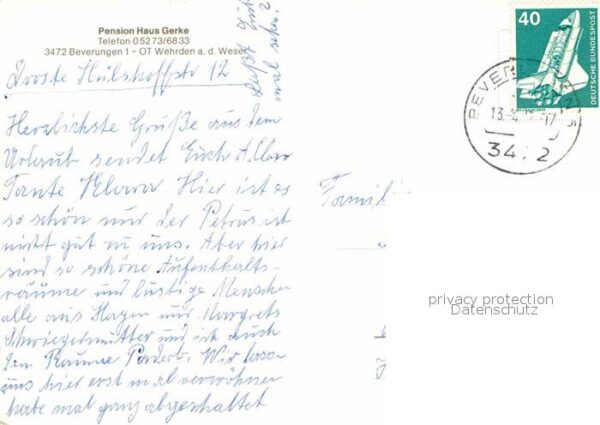 Pension Haus Gerke
Telefon 05273/6833
3472 Beverungen 1 - OT Wehrden a. d. Weser
Droste Hülshoffstr 12
Herzlichste Grüße aus dem
Urlaub sendet Euch allen
Tante Klara. Hier ist es
so schön nur der Petrus ist
nicht gut zu uns. Aber hier
sind so schöne Aufenthalts-
räume und lustige Menschen
alle aus Hagen nur Margrets
Schwiegermutter und ich auch
den Raume Paderb. Wir lass-
uns hier erst mal verwöhnen
habe mal ganz abgeschaltet
40
DEUTSCHE BUNDESPOST
BEVERUNGEN
13.
-17
34 2
Famili
privacy protection
Datenschutz